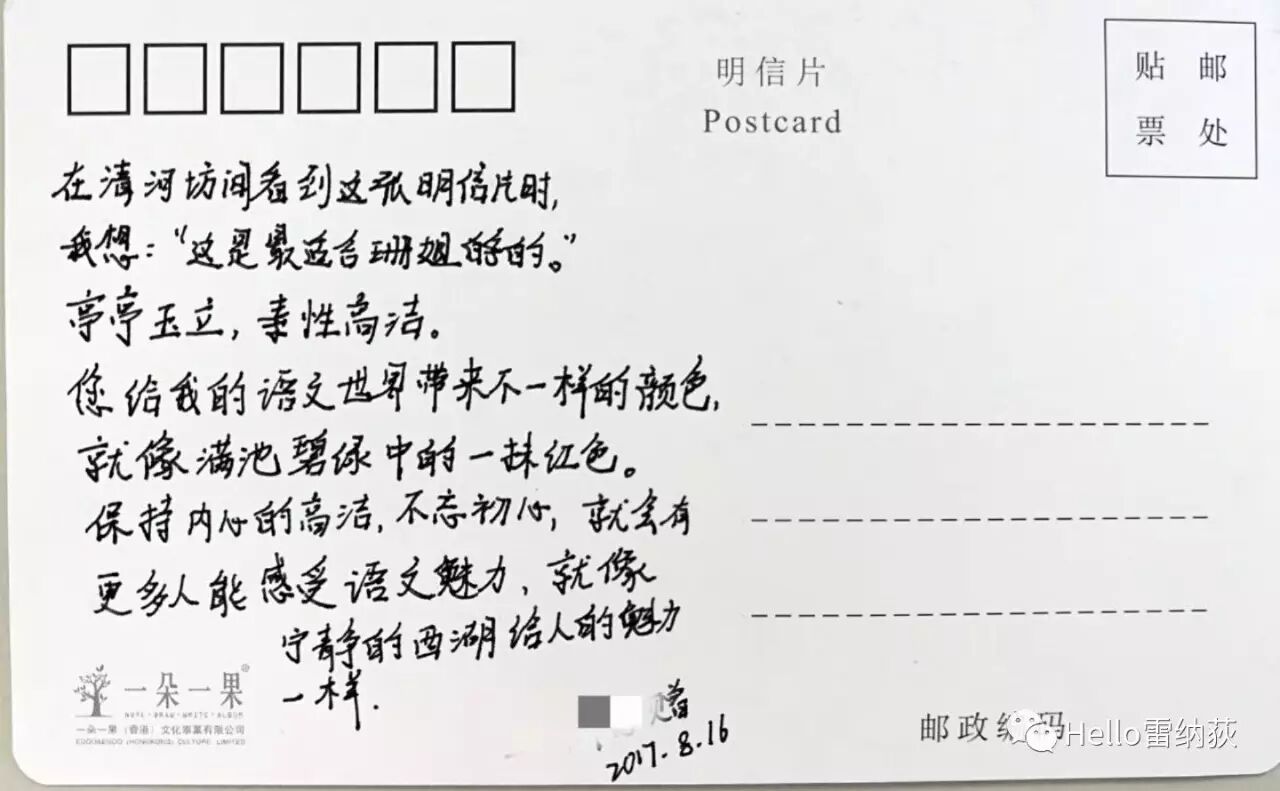 明信片
Postcard
贴 邮
票 处
在清河坊间看到这张明信片时，
我想：“这是最适合珊姐的。”
亭亭玉立，素性高洁。
您给我的语文世界带来不一样的颜色，
就像满池碧绿中的一抹红色。
保持内心的高洁，不忘初心，就会有
更多人能感受语文魅力，就像
宁静的西湖给人的魅力
一样.
赠
2017.8.16
一朵一果
NOTE·DRAW·WRITE·ALBUM
一朵一果（香港）文化事业有限公司
邮政编码
Hello雷纳荻